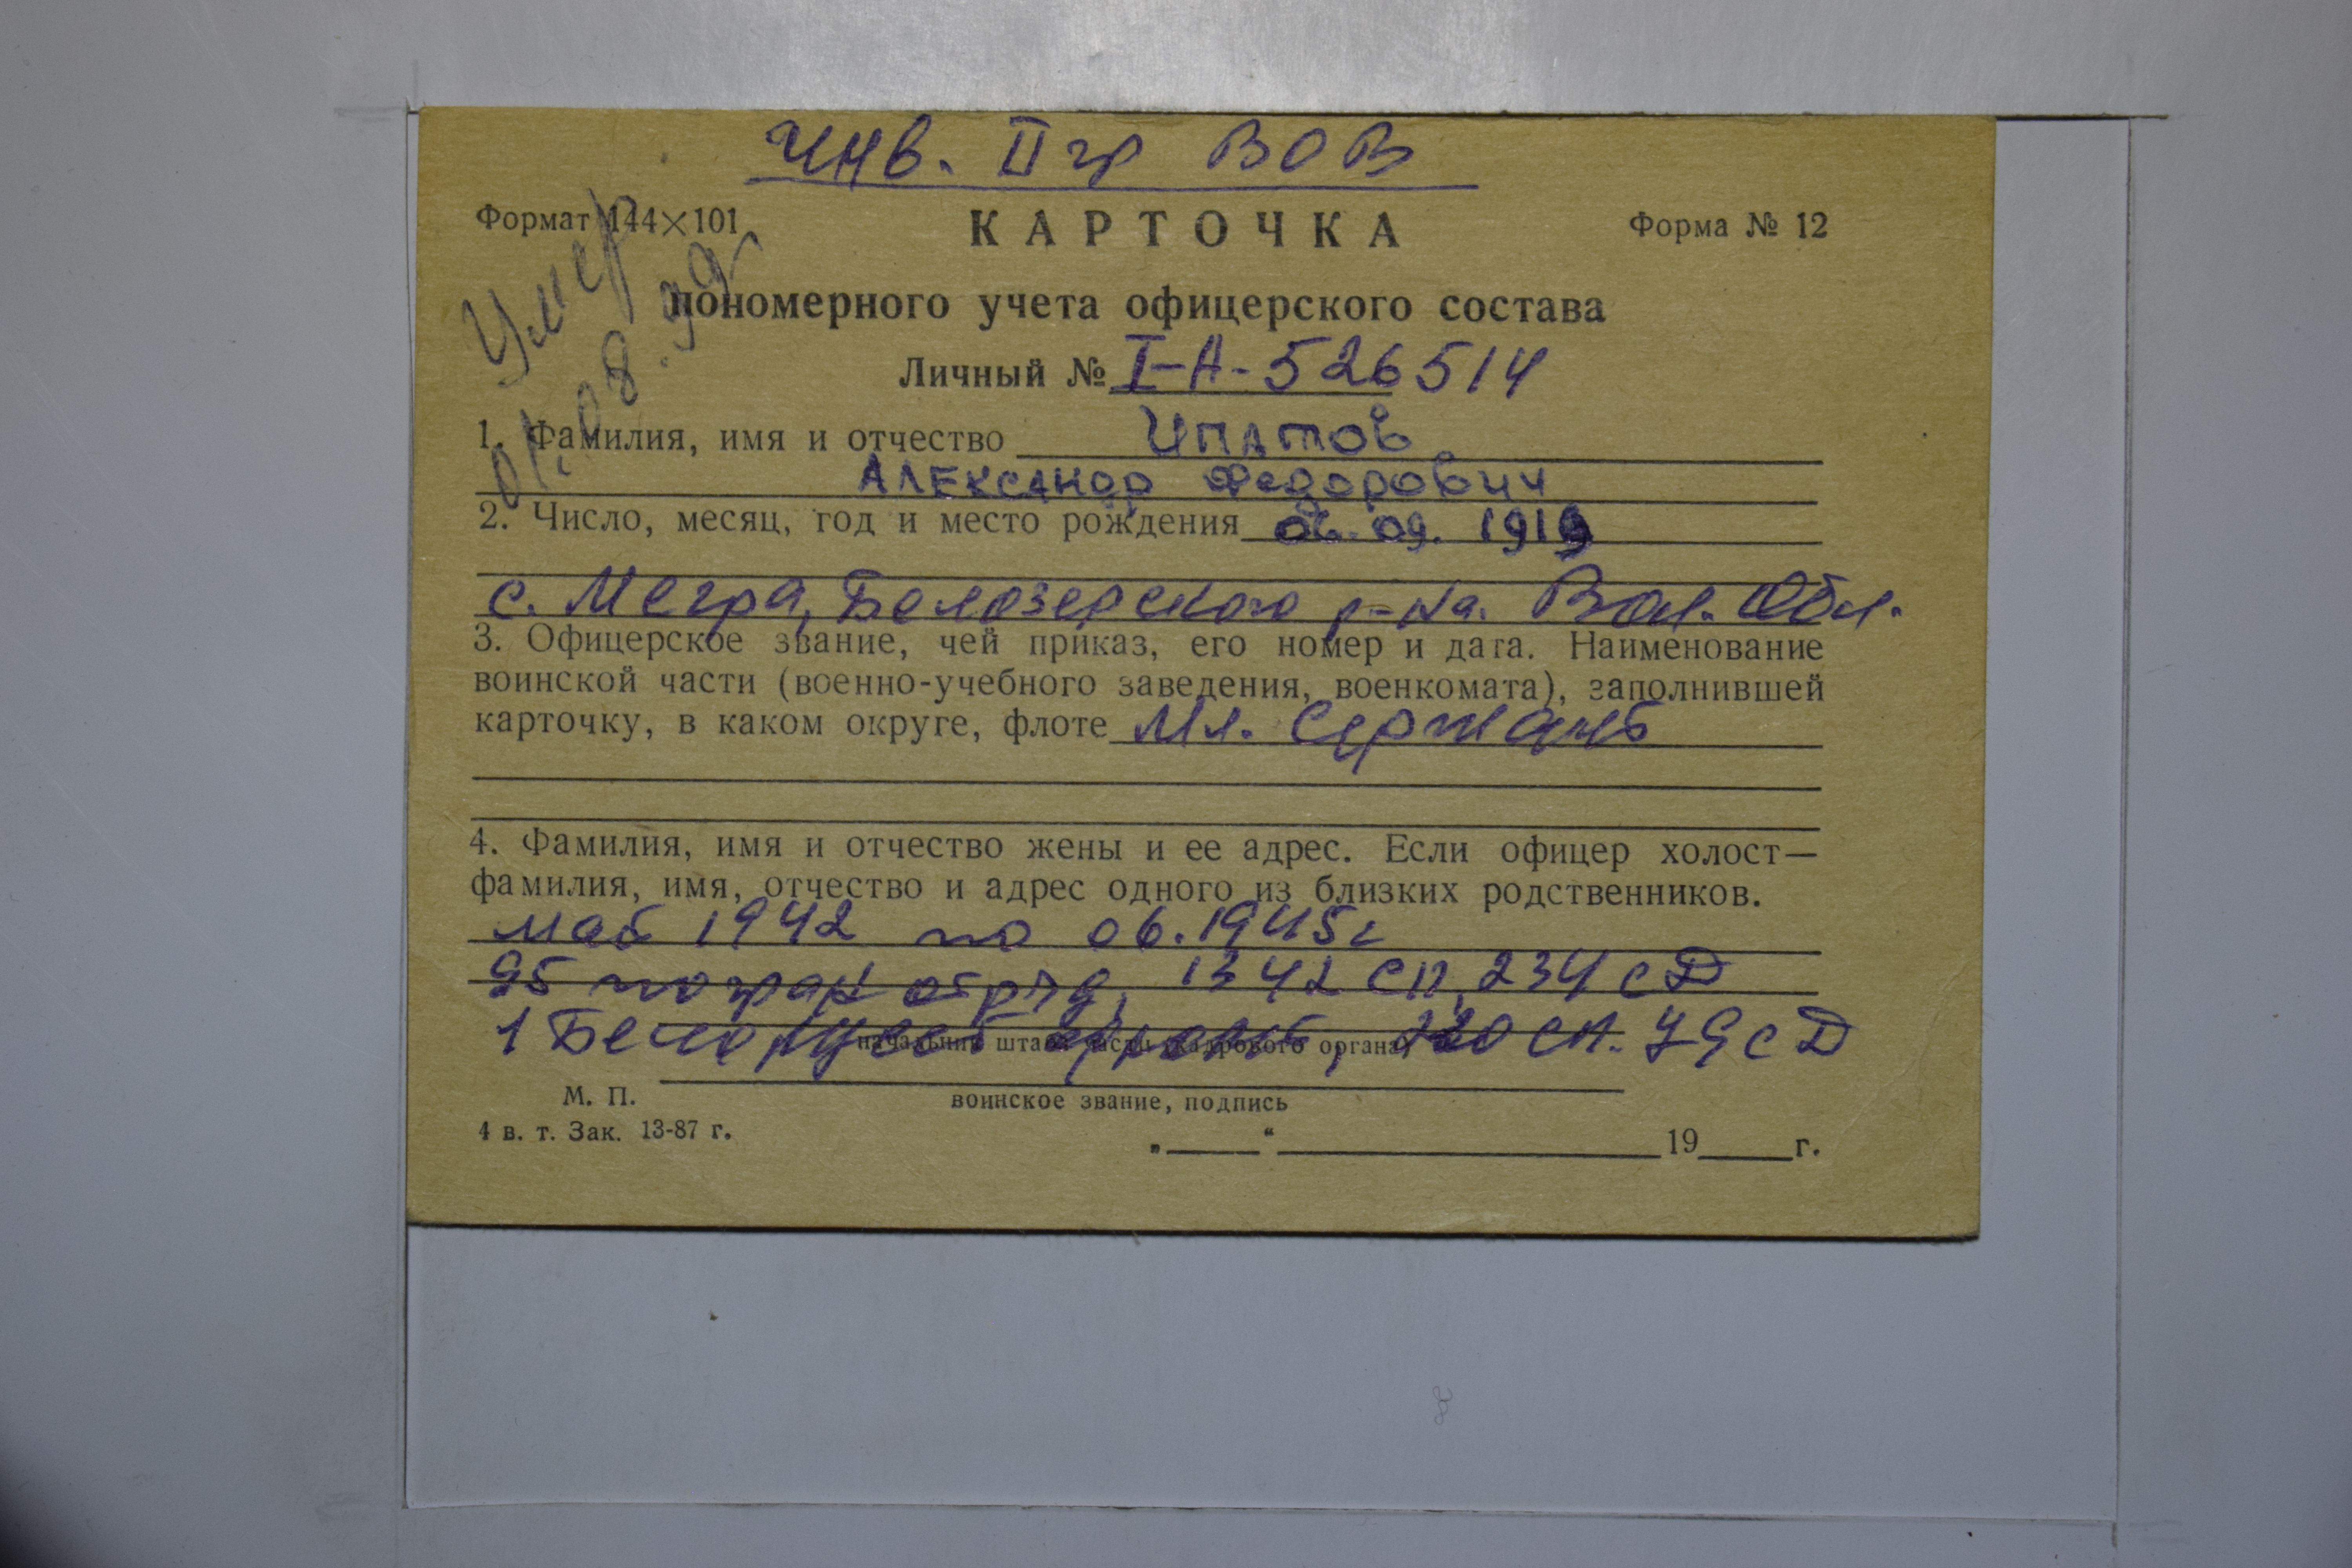 Инв. II гр ВОВ
Формат 144×101 КАРТОЧКА Форма № 12
Умер
01.08.99г
пономерного учета офицерского состава
Личный № I-А-526514
1. Фамилия, имя и отчество Ипатов
Александр Федорович
2. Число, месяц, год и место рождения 06.09.1919
с. Мегра, Белозерского р-на. Вол. Обл.
3. Офицерское звание, чей приказ, его номер и дата. Наименование
воинской части (военно-учебного заведения, военкомата), заполнившей
карточку, в каком округе, флоте Мл. Сержант
4. Фамилия, имя и отчество жены и ее адрес. Если офицер холост—
фамилия, имя, отчество и адрес одного из близких родственников.
май 1942 по 06.1945г
95 погран отряд, 1342 СП, 234 сД
1 Белорусс фронт, 220 СП. 79 сД
начальник штаба части (кадрового органа)
М. П.
воинское звание, подпись
4 в. т. Зак. 13-87 г.
„ “ 19 г.